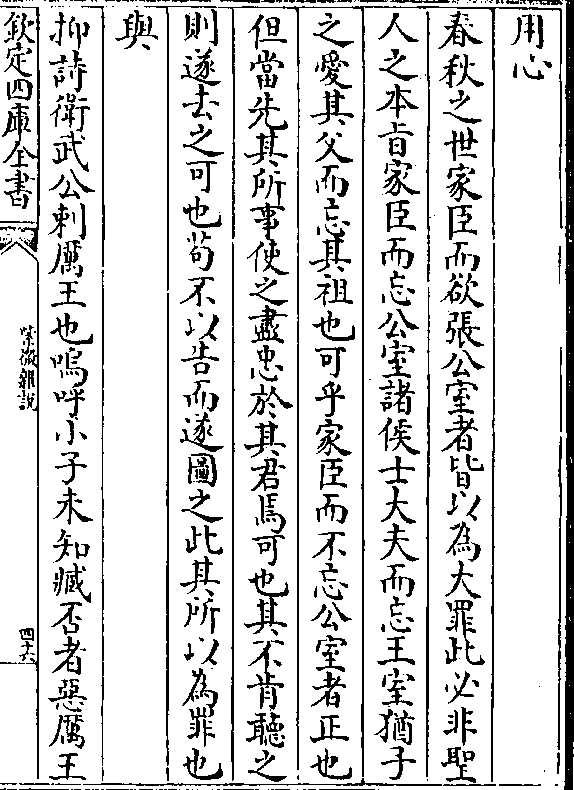 用心
春秋之世家臣而欲張公室者皆以為大罪此必非聖
人之本旨家臣而忘公室諸侯士大夫而忘王室猶子
之愛其父而忘其祖也可乎家臣而不忘公室者正也
但當先其所事使之盡忠於其君焉可也其不肯聽之
則遂去之可也茍不以告而遂圖之此其所以為罪也
與
抑詩衛武公刺厲王也嗚呼小子未知臧否者惡厲王
欽定四庫全書
紫微雜說
四十六